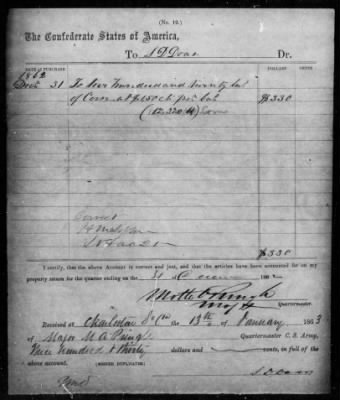 (No. 12.)
The Confederate States of America,
To S D Doar Dr.
DATE OF PURCHASE DOLLARS CENTS
1862
Dec 31 To Two hundred and Twenty bu
of Corn at $1.50 cts per bu $330
(220)
$330
I certify, that the above Account is correct and just, and that the articles have been accounted for on my
property return for the quarter ending on the 31 of Decem 186
Motte A Pringle
Maj & Quartermaster.
Received at Charleston So Ca the 13th of January 1863
of Major M A Pringle Quartermaster C. S. Army,
Three hundred & thirty dollars and cents, in full of the
above account. (SIGNED DUPLICATES)
S D Doar